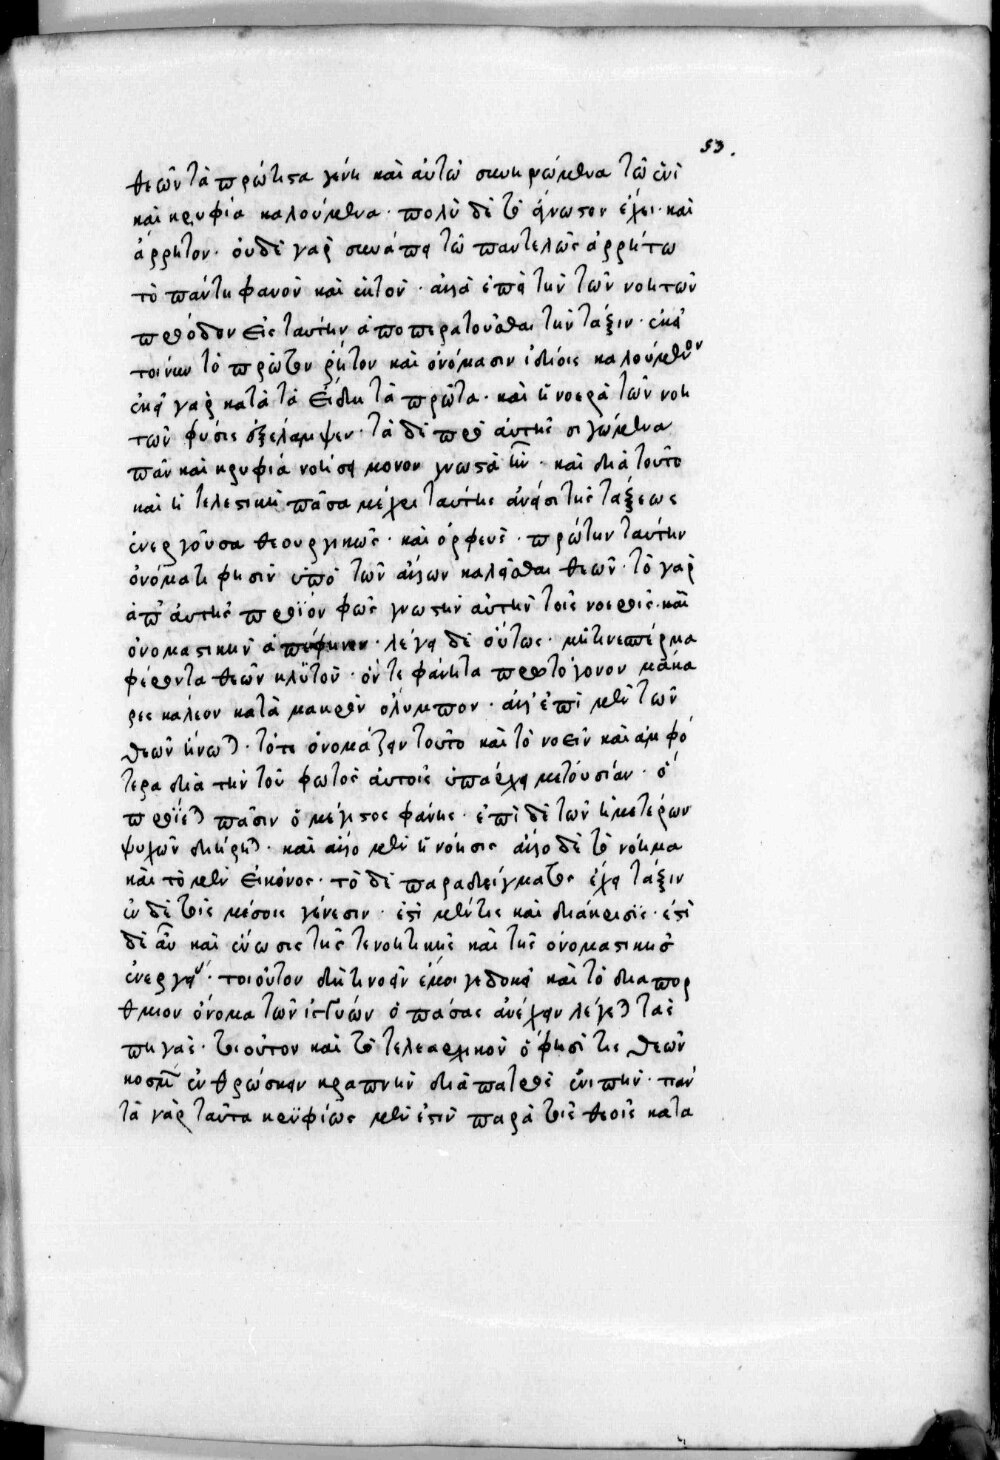 53.
θεῶν τὰ πρώτιστα γένη καὶ αὐτῶ συνηρώμενα τῶ ἑνὶ
καὶ κρυφία καλούμενα · πολὺ δὲ τὸ ἄγνωστον ἔχει · καὶ
ἄρρητον · οὐδὲ γὰρ συνάπτει τῶ παντελῶς ἀρρήτω
τὸ πάντη φανὸν καὶ ῥητὸν · ἀλλὰ τὴν τῶν νοητῶν
πρόοδον εἰς ταύτην ἀποπερατοῦσθαι τὴν τάξιν · ἐκεῖ
τοίνυν τὸ πρῶτον ῥητὸν καὶ ὀνόμασιν ἰδίοις καλούμενον
ἐκεῖ γὰρ κατὰ τὰ εἴδη τὰ πρῶτα · καὶ ἡ νοερὰ τῶν νοη
τῶν φύσις ἐξέλαμψεν · τὰ δὲ πρὸ αὐτῆς σιγώμενα
πᾶν καὶ κρυφιά νοήσει μονον γνωστὰ ἦν · καὶ διὰ τοῦτο
καὶ ἡ τελεστικὴ πᾶσα μέχρι ταύτης ἄνεισι τῆς τάξεως
ἐνεργοῦσα θεουργικῶς · καὶ ὀρφεὺς · πρώτην ταύτην
ὀνόματι φησὶν ὑπὸ τῶν ἄλλων καλεῖσθαι θεῶν · τὸ γὰρ
ἀπ' αὐτῆς προϊὸν φῶς γνωστὴν αὐτὴν τοῖς νοεροῖς · καὶ
ὀνομαστικὴν ἀπέφηνεν · λέγει δὲ οὕτως · μῆτιν σπέρμα
φέροντα θεῶν κλυτὸν · ὅν τε φάνητα πρωτόγονον μάκα
ρες κάλεον κατὰ μακρὸν ὄλυμπον · ἀλλ' ἐπὶ μὲν τῶν
θεῶν ἥνωται · τό τε ὀνομάζειν τοῦτο καὶ τὸ νοεῖν καὶ ἀμφό
τερα διὰ τὴν τοῦ φωτὸς αὐτοῖς ὑπάρχει μετουσίαν · ὃ
προΐεται πᾶσιν ὁ μέγιστος φάνης · ἐπὶ δὲ τῶν ἡμετέρων
ψυχῶν διήρηται · καὶ ἄλλο μὲν ἡ νόησις ἄλλο δὲ τὸ νόημα
καὶ τὸ μὲν εἰκόνος · τὸ δὲ παραδείγματος ἔχει τάξιν
ἐν δὲ τοῖς μέσοις γένεσιν · ἔστι μέν τις καὶ διάκρισις · ἔστι
δὲ αὖ καὶ ἕνωσις τῆς τε νοητικῆς καὶ τῆς ὀνομαστικῆς
ἐνεργείας · τοιοῦτον δή τι νοεῖν ἐμοι γε δοκεῖ καὶ τὸ διαπορ
θμιον ὄνομα τῶν ἰϋγγων ὃ πάσας ἀνέχειν λέγεται τὰς
πηγάς · τοιοῦτον καὶ τὸ τελεαρχικὸν ὅ φησί τις θεῶν
ἐνθρώσκειν κραιπνὴν διὰ πατρὸς ἐνιπὴν · πάν
τα γὰρ ταῦτα κρυφίως μέν ἐστιν παρὰ τοῖς θεοῖς κατα